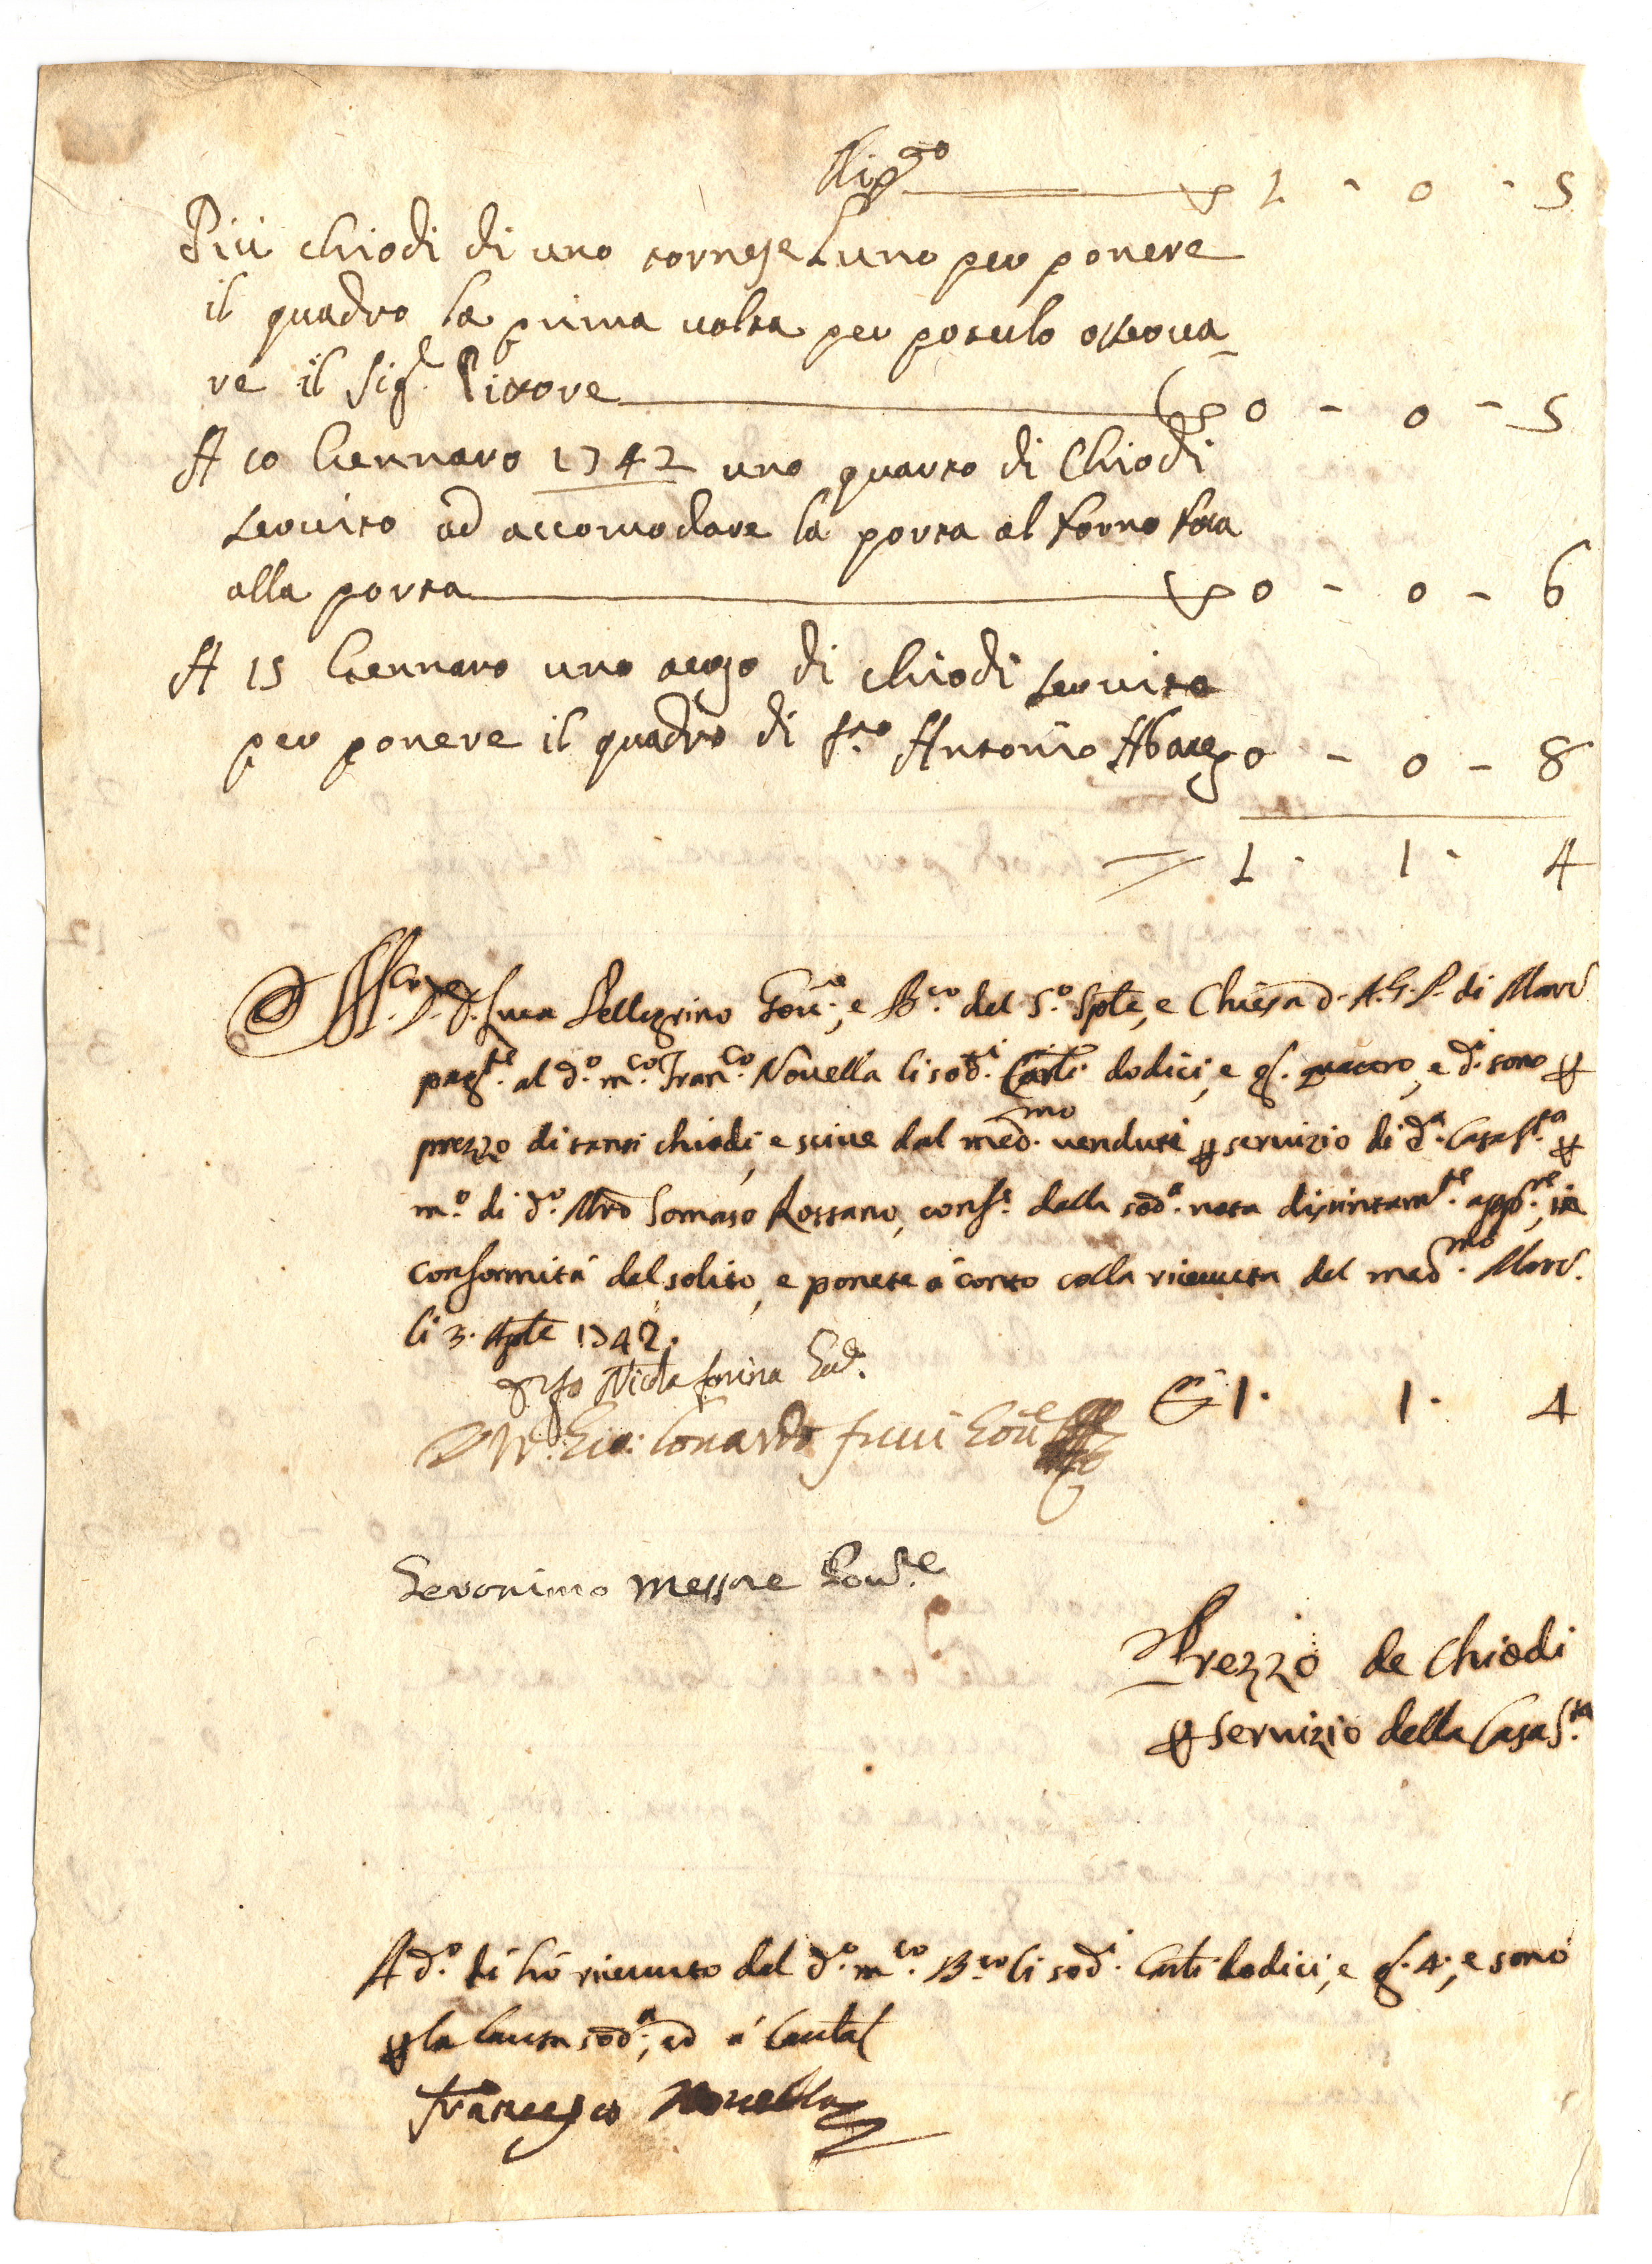 Rip.to 1 - 0 - 5
Più chiodi di uno tornese l'uno per ponere
il quadro la prima volta per poterlo osserva-
re il Sig.r Pittore 0 - 0 - 5
A 10 Gennaro 1742 uno quarto di Chiodi
servito ad accomodare la porta al forno fora
alla porta 0 - 0 - 6
A 15 Gennaro uno di chiodi servito
per ponere il quadro di S.to Antonio Abate 0 - 0 - 8
1 - 1 - 4
Luca Pellegrino Gov.e, e B.ro del S.o Sple, e Chiesa d. A.G.P. di Mard
pag.te al d.o m.co Fran.co Novella li sod.i Carli dodici, e g. quattro, e d.i sono p
prezzo di tanti chiodi, e scive dal med.mo venduti p servizio di d.a Casa S.ta p
m.o di d.o Mro Tomaso Rossano, conf.e dalla sod.a nota distintam.te app.re, in
conformità del solito, e ponete a conto colla ricevuta del med.mo Mard.
li 3. Aple 1742.
Nicola farina God. 1. 1. 4
Gio: Lonardo fucci Gov.e
Geronimo Messore Gov.re
Prezzo de Chiodi
p servizio della Casa S.ta
A d.o dì hò ricevuto dal d.o m.co B.ro li sod.i Carli dodici, e g. 4., e sono
p la causa sod.a, ed a Cautal
Francesco Novella